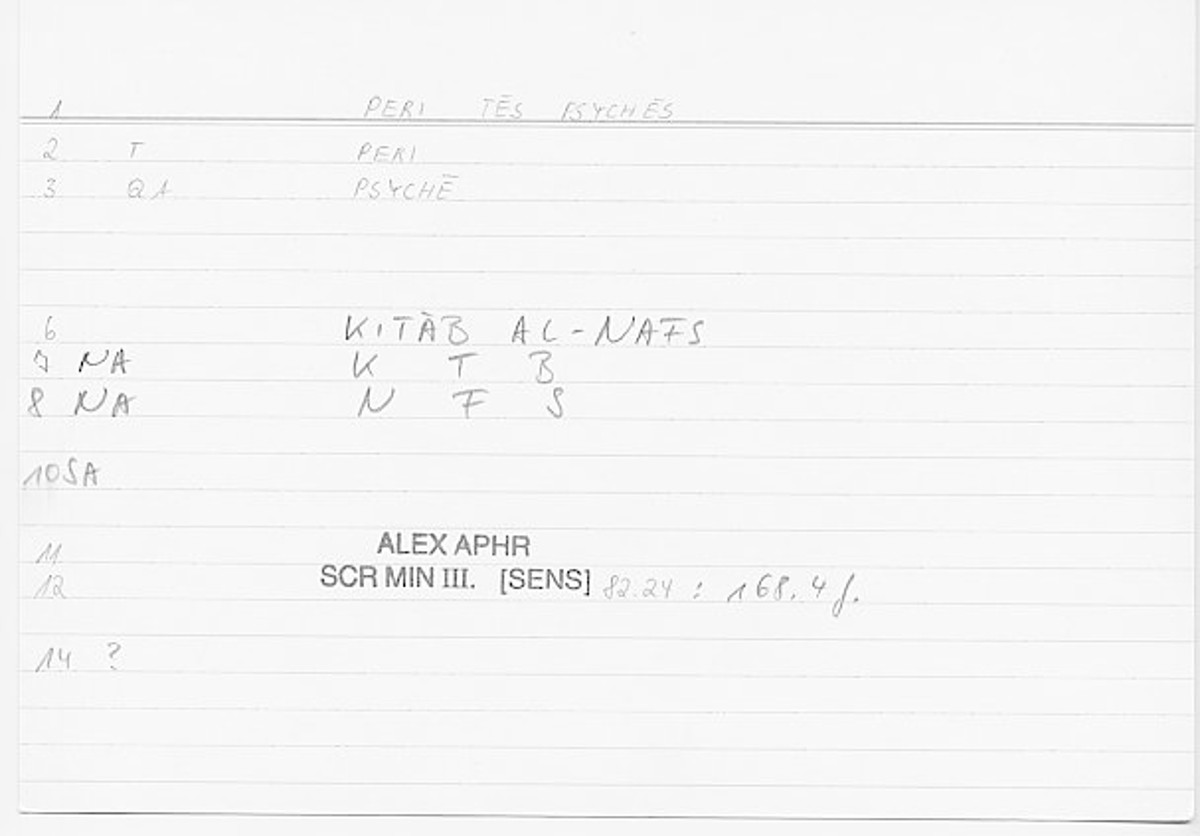 1 PERI TĒS PSYCHĒS
2 T PERI
3 QA PSYCHĒ
6 KITĀB AL-NAFS
7 NA K T B
8 NA N F S
10 SA
11 ALEX APHR
12 SCR MIN III. [SENS] 82.24 : 168.4 f.
14 ?